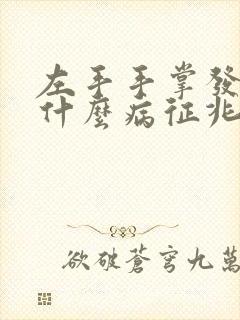 左手手掌發
什麼病征兆
欲破蒼穹九萬